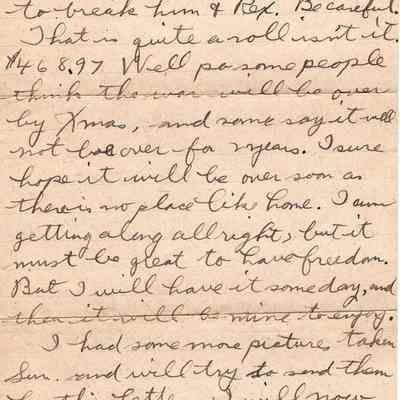 to break him & Rex. Be careful.
That is quite a roll isn't it.
$468.97 Well pa some people
think the war will be over
by Xmas, and some say it will
not be over for years. I sure
hope it will be over soon as
there is no place like home. I am
getting along all right, but it
must be great to have freedom.
But I will have it some day, and
then it will be mine to enjoy.
I had some more pictures taken
Sun. and will try to send them
in this letter. I will now